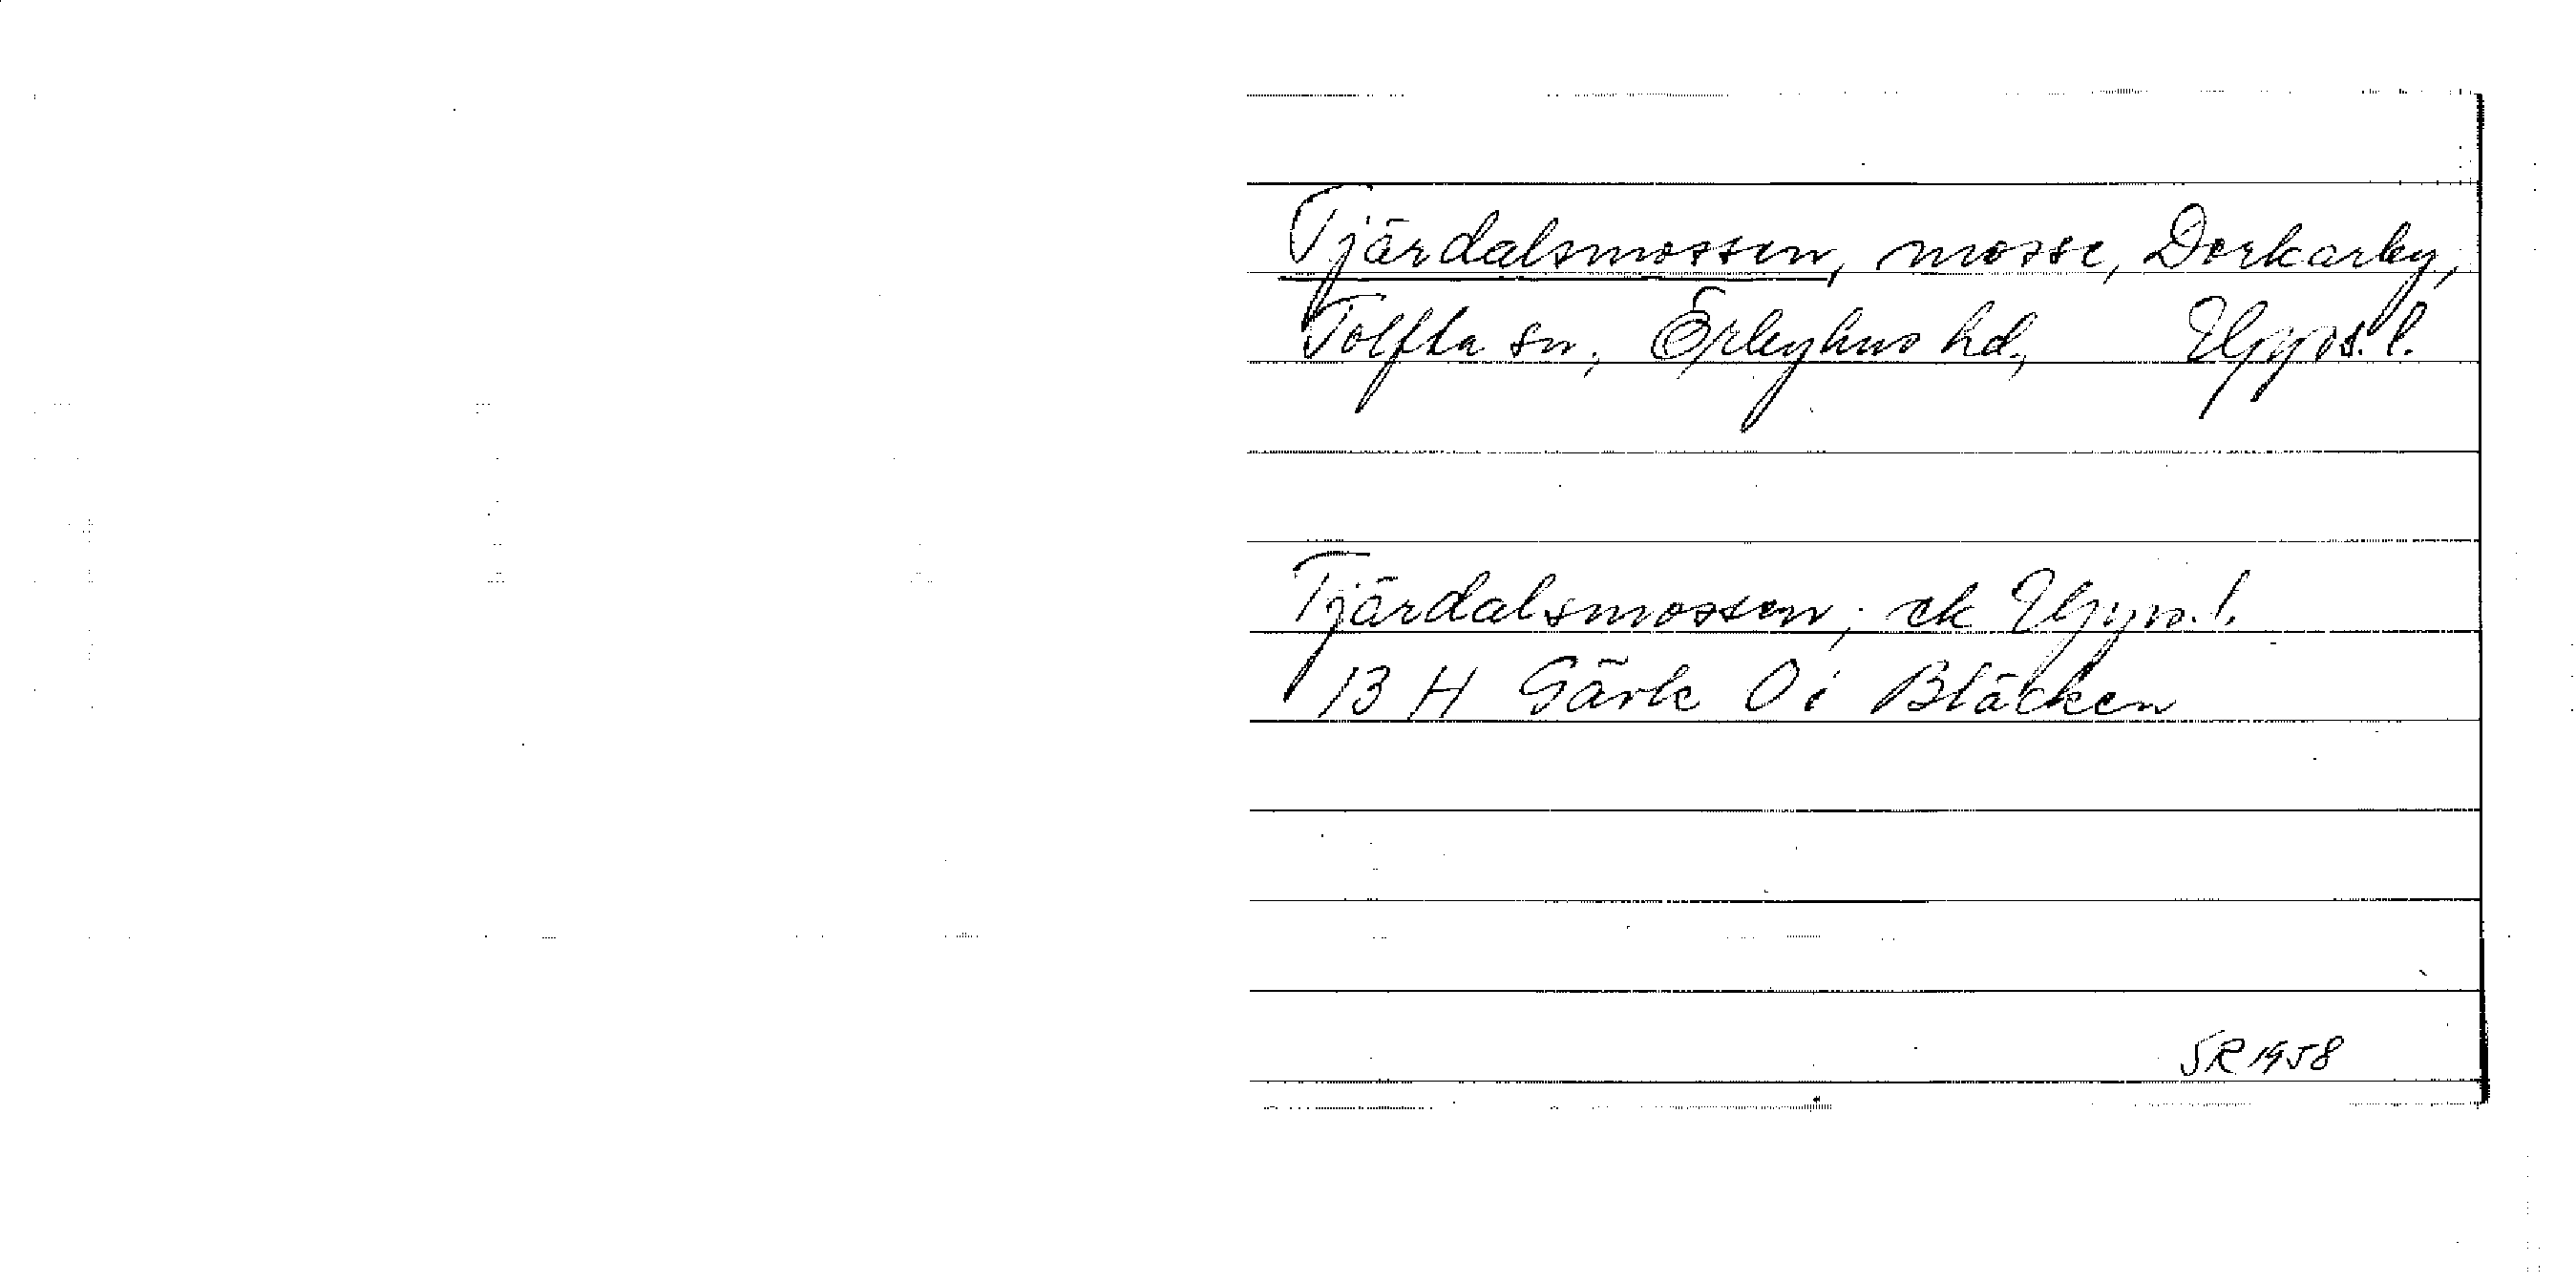 Tjärdalsmossen, mosse, Dorkarby,
Tolfta sn, Örbyhus hd, Upps. l.
Tjärdalsmossen; ek Upps. l.
13 H Gävle 0i Bläcken
SR 1958